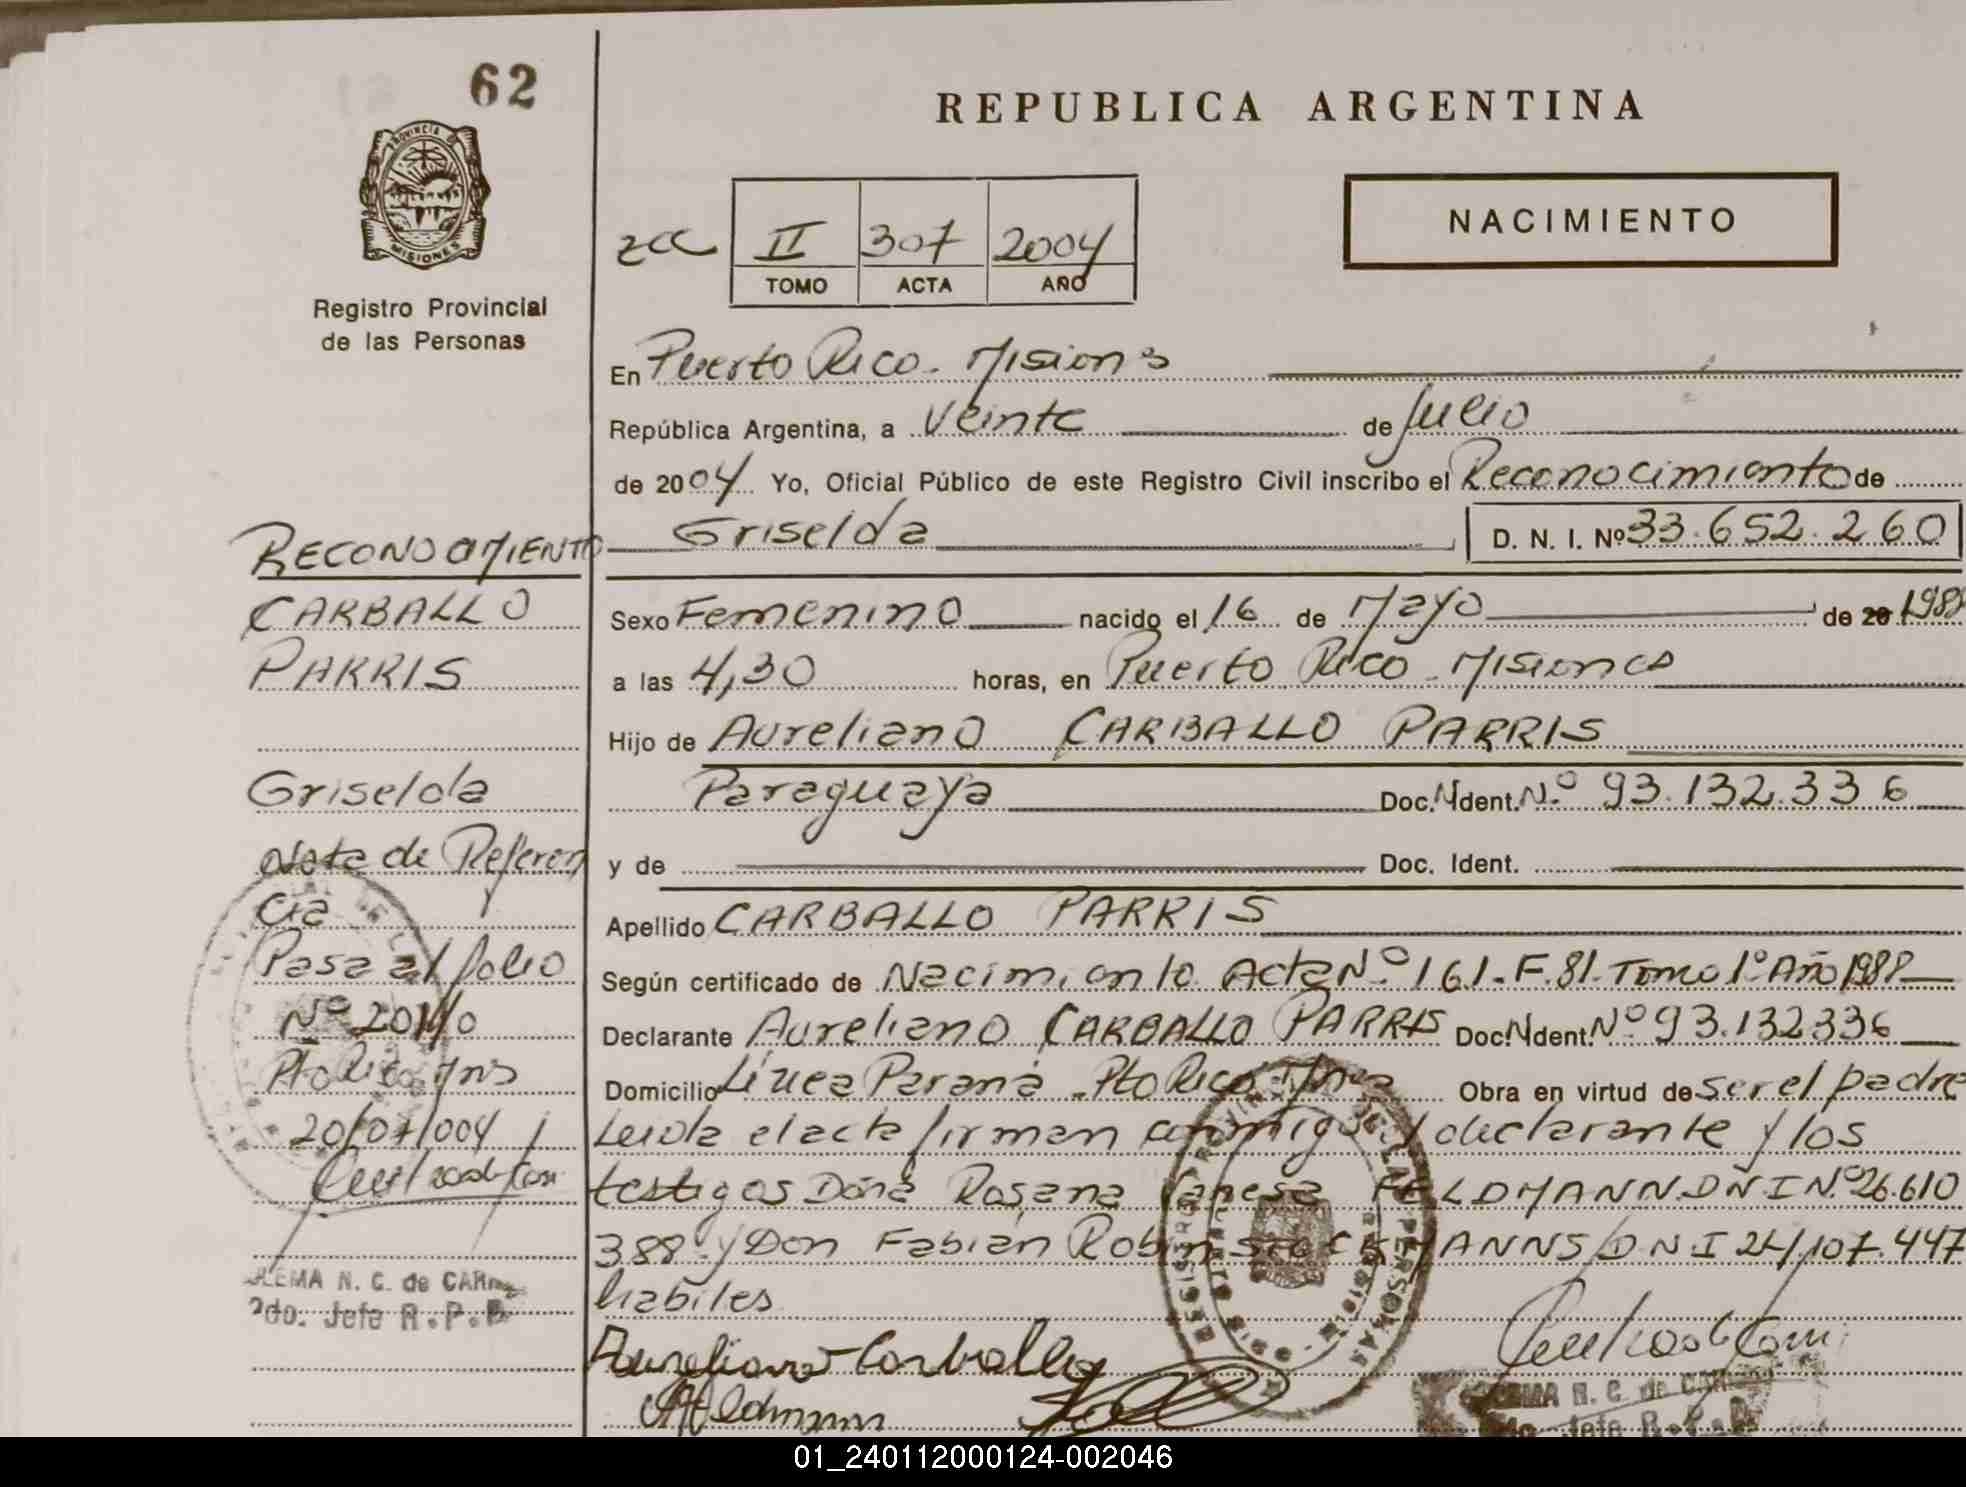 62
REPUBLICA ARGENTINA
PROVINCIA DE
MISIONES
Registro Provincial
de las Personas
NACIMIENTO
II 307 2004
TOMO ACTA AÑO
En Puerto Rico. Misions
República Argentina, a Veinte de Julio
de 2004 Yo, Oficial Público de este Registro Civil inscribo el Reconocimiento de
Griselda D. N. I. Nº 33.652.260
Sexo Femenino nacido el 16 de Mayo de 20 1988
a las 4,30 horas, en Puerto Rico. Misiones
Hijo de Aureliano CARBALLO PARRIS
Paraguaya Doc. Ident. Nº 93.132.336
y de Doc. Ident.
Apellido CARBALLO PARRIS
Según certificado de Nacimiento Acta Nº 161. F. 81. Tomo 1º Año 1988
Declarante Aureliano CARBALLO PARRIS Doc. Ident. Nº 93.132336
Domicilio Línea Paraná. Pto Rico Obra en virtud de ser el padre
Leida el acta firman conmigo el declarante y los
testigos Doña Rosana Vanesa FELDMANN DNI Nº 26.610
388 y Don Fabián Robin DNI 24.107.447
habiles
Aureliano Carballo
RECONOCIMIENTO
CARBALLO
PARRIS
Griselda
Nota de Referen
cia
Pasa al folio
Nº
Pto Rico Mns
20/07/004
N. C. de
2do. Jefe R.P.P.
N. C. de
Jefe R.P.P.
REGISTRO PROVINCIAL DE LAS PERSONAS
01_240112000124-002046